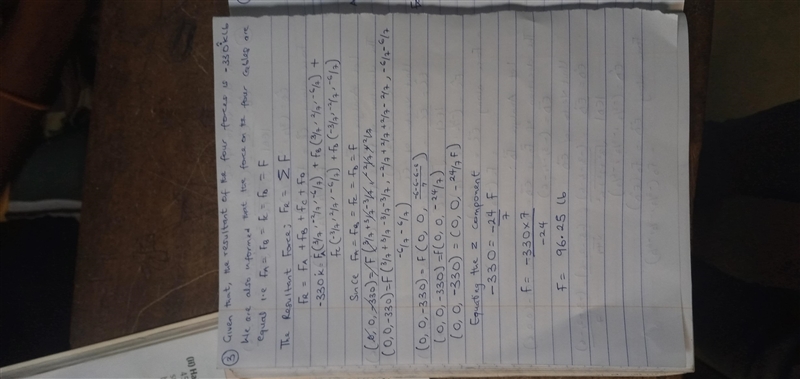 ③ Given that, the resultant of the four forces is -330k lb
We are also informed that the force on the four cables are
equal i.e FA = FB = FC = FD = F
The Resultant Force; FR = ΣF
FR = FA + FB + FC + FD
-330k = FA(3/7, -2/7, -6/7) + FB(3/7, 2/7, -6/7) +
FC(-3/7, 2/7, -6/7) + FD(-3/7, -2/7, -6/7)
Since FA = FB = FC = FD = F
(0, 0, -330) = F(3/7 + 3/7 - 3/7 - 3/7, -2/7 + 2/7 + 2/7 - 2/7, -6/7 - 6/7
-6/7 - 6/7)
(0, 0, -330) = F(0, 0, -6-6-6-6/7)
(0, 0, -330) = F(0, 0, -24/7)
(0, 0, -330) = (0, 0, -24/7 F)
Equating the z component
-330 = -24/7 F
F = -330 x 7/-24
F = 96.25 lb